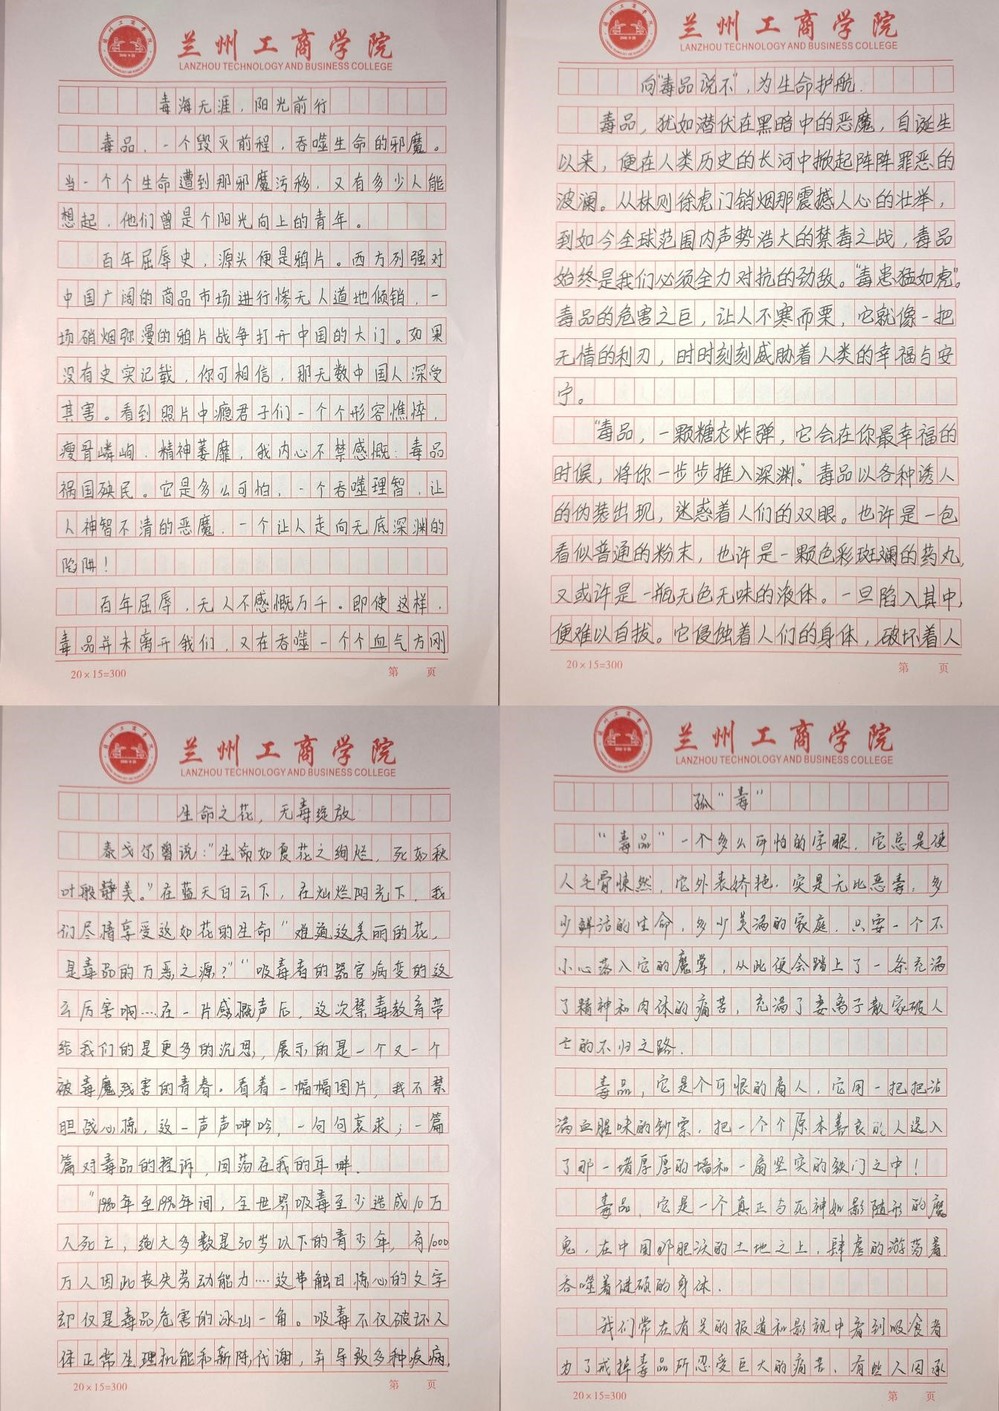 兰州工商学院
LANZHOU TECHNOLOGY AND BUSINESS COLLEGE
毒海无涯,阳光前行
毒品,一个毁灭前程,吞噬生命的邪魔。
当一个个生命遭到那邪魔污秽,又有多少人能
想起,他们曾是个阳光向上的青年。
百年屈辱史,源头便是鸦片。西方列强对
中国广阔的商品市场进行惨无人道地倾销,一
场硝烟弥漫的鸦片战争打开中国的大门。如果
没有史实记载,你可相信,那无数中国人深受
其害。看到照片中瘾君子们一个个形容憔悴,
瘦骨嶙峋,精神萎靡,我内心不禁感慨:毒品
祸国殃民。它是多么可怕,一个吞噬理智,让
人神智不清的恶魔,一个让人走向无底深渊的
陷阱!
百年屈辱,无人不感慨万千。即使这样,
毒品并未离开我们,又在吞噬一个个血气方刚
20×15=300
第 页
兰州工商学院
LANZHOU TECHNOLOGY AND BUSINESS COLLEGE
向“毒品说不”,为生命护航.
毒品,犹如潜伏在黑暗中的恶魔,自诞生
以来,便在人类历史的长河中掀起阵阵罪恶的
波澜。从林则徐虎门销烟那震撼人心的壮举,
到如今全球范围内声势浩大的禁毒之战,毒品
始终是我们必须全力对抗的劲敌。“毒患猛如虎”。
毒品的危害之巨,让人不寒而栗,它就像一把
无情的利刃,时时刻刻威胁着人类的幸福与安
宁。
“毒品,一颗糖衣炸弹,它会在你最幸福的
时候,将你一步步推入深渊。”毒品以各种诱人
的伪装出现,迷惑着人们的双眼。也许是一包
看似普通的粉末,也许是一颗色彩斑斓的药丸,
又或许是一瓶无色无味的液体。一旦陷入其中,
便难以自拔。它侵蚀着人们的身体,破坏着人
20×15=300
第 页
兰州工商学院
LANZHOU TECHNOLOGY AND BUSINESS COLLEGE
生命之花,无毒绽放
泰戈尔曾说:“生命如夏花之绚烂,死如秋
叶般静美。”在蓝天白云下,在灿烂阳光下,我
们尽情享受这如花的生命“难道这美丽的花,
是毒品的万恶之源?”“吸毒者的器官病变的这
么厉害啊…在一片感慨声后,这次禁毒教育带
给我们的是更多的沉思,展示的是一个又一个
被毒魔残害的青春。看着一幅幅图片,我不禁
胆战心惊,这一声声呻吟,一句句哀求;一篇
篇对毒品的控诉,回荡在我的耳畔.
“1980年至1990年间,全世界吸毒至少造成10万
人死亡,绝大多数是30岁以下的青少年,有1000
万人因此丧失劳动能力…这串触目惊心的文字
却仅是毒品危害的冰山一角。吸毒不仅破坏人
体正常生理机能和新陈代谢,并导致多种疾病,
20×15=300
第 页
兰州工商学院
LANZHOU TECHNOLOGY AND BUSINESS COLLEGE
孤“毒”
“毒品”一个多么可怕的字眼,它总是使
人毛骨悚然,它外表娇艳,实是无比恶毒,多
少鲜活的生命,多少美满的家庭,只要一个不
小心落入它的魔掌,从此便会踏上了一条充满
了精神和肉体的痛苦,充满了妻离子散家破人
亡的不归之路.
毒品,它是个可恨的商人,它用一把把沾
满血腥味的钥索,把一个个原本善良的人送入
了那一堵厚厚的墙和一扇坚实的铁门之中!
毒品,它是一个真正与死神如影随形的魔
鬼,在中国那肥沃的土地之上,肆虐的游荡着
吞噬着健硕的身体.
我们常在有关的报道和影视中看到吸食者
为了戒掉毒品所忍受巨大的痛苦、有些人因承
20×15=300
第 页